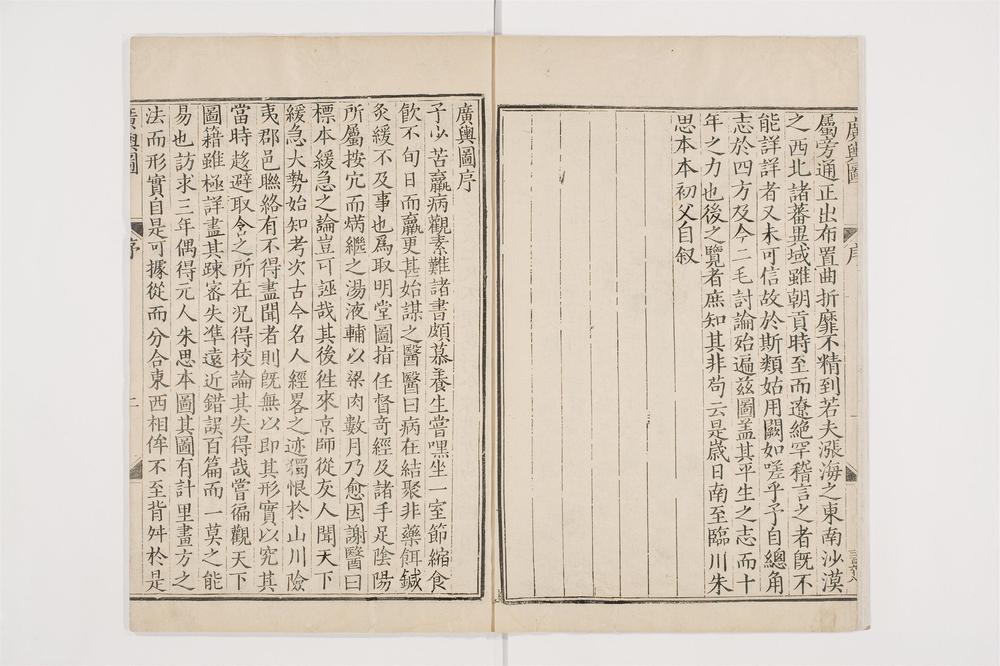 廣輿圖
序
屬旁通正出布置曲折靡不精到若夫漲海之東南沙漠
之西北諸蕃異域雖朝貢時至而遼絶罕稽言之者旣不
能詳詳者又未可信故於斯類姑用闕如嗟乎予自總角
志於四方及今二毛討論殆遍兹圖盖其平生之志而十
年之力也後之覽者庶知其非苟云是歲日南至臨川朱
思本本初父自叙
廣輿圖序
子少苦羸病觀素難諸書頗慕養生嘗嘿坐一室節縮食
飲不旬日而羸更甚始謀之醫醫曰病在結聚非藥餌鍼
灸緩不及事也爲取明堂圖指任督奇經及諸手足陰陽
所屬按宂而焫繼之湯液輔以梁肉數月乃愈因謝醫曰
標本緩急之論豈可誣哉其後徃來京師從友人聞天下
緩急大勢始知考次古今名人經畧之迹獨恨於山川險
夷郡邑聮絡有不得盡聞者則旣無以即其形實以究其
當時趍避取令之所在况得校論其失得哉嘗徧觀天下
圖籍雖極詳盡其踈宻失凖遠近錯誤百篇而一莫之能
易也訪求三年偶得元人朱思本圖其圖有計里畫方之
法而形實自是可據從而分合東西相侔不至背舛於是
廣輿圖
序
二